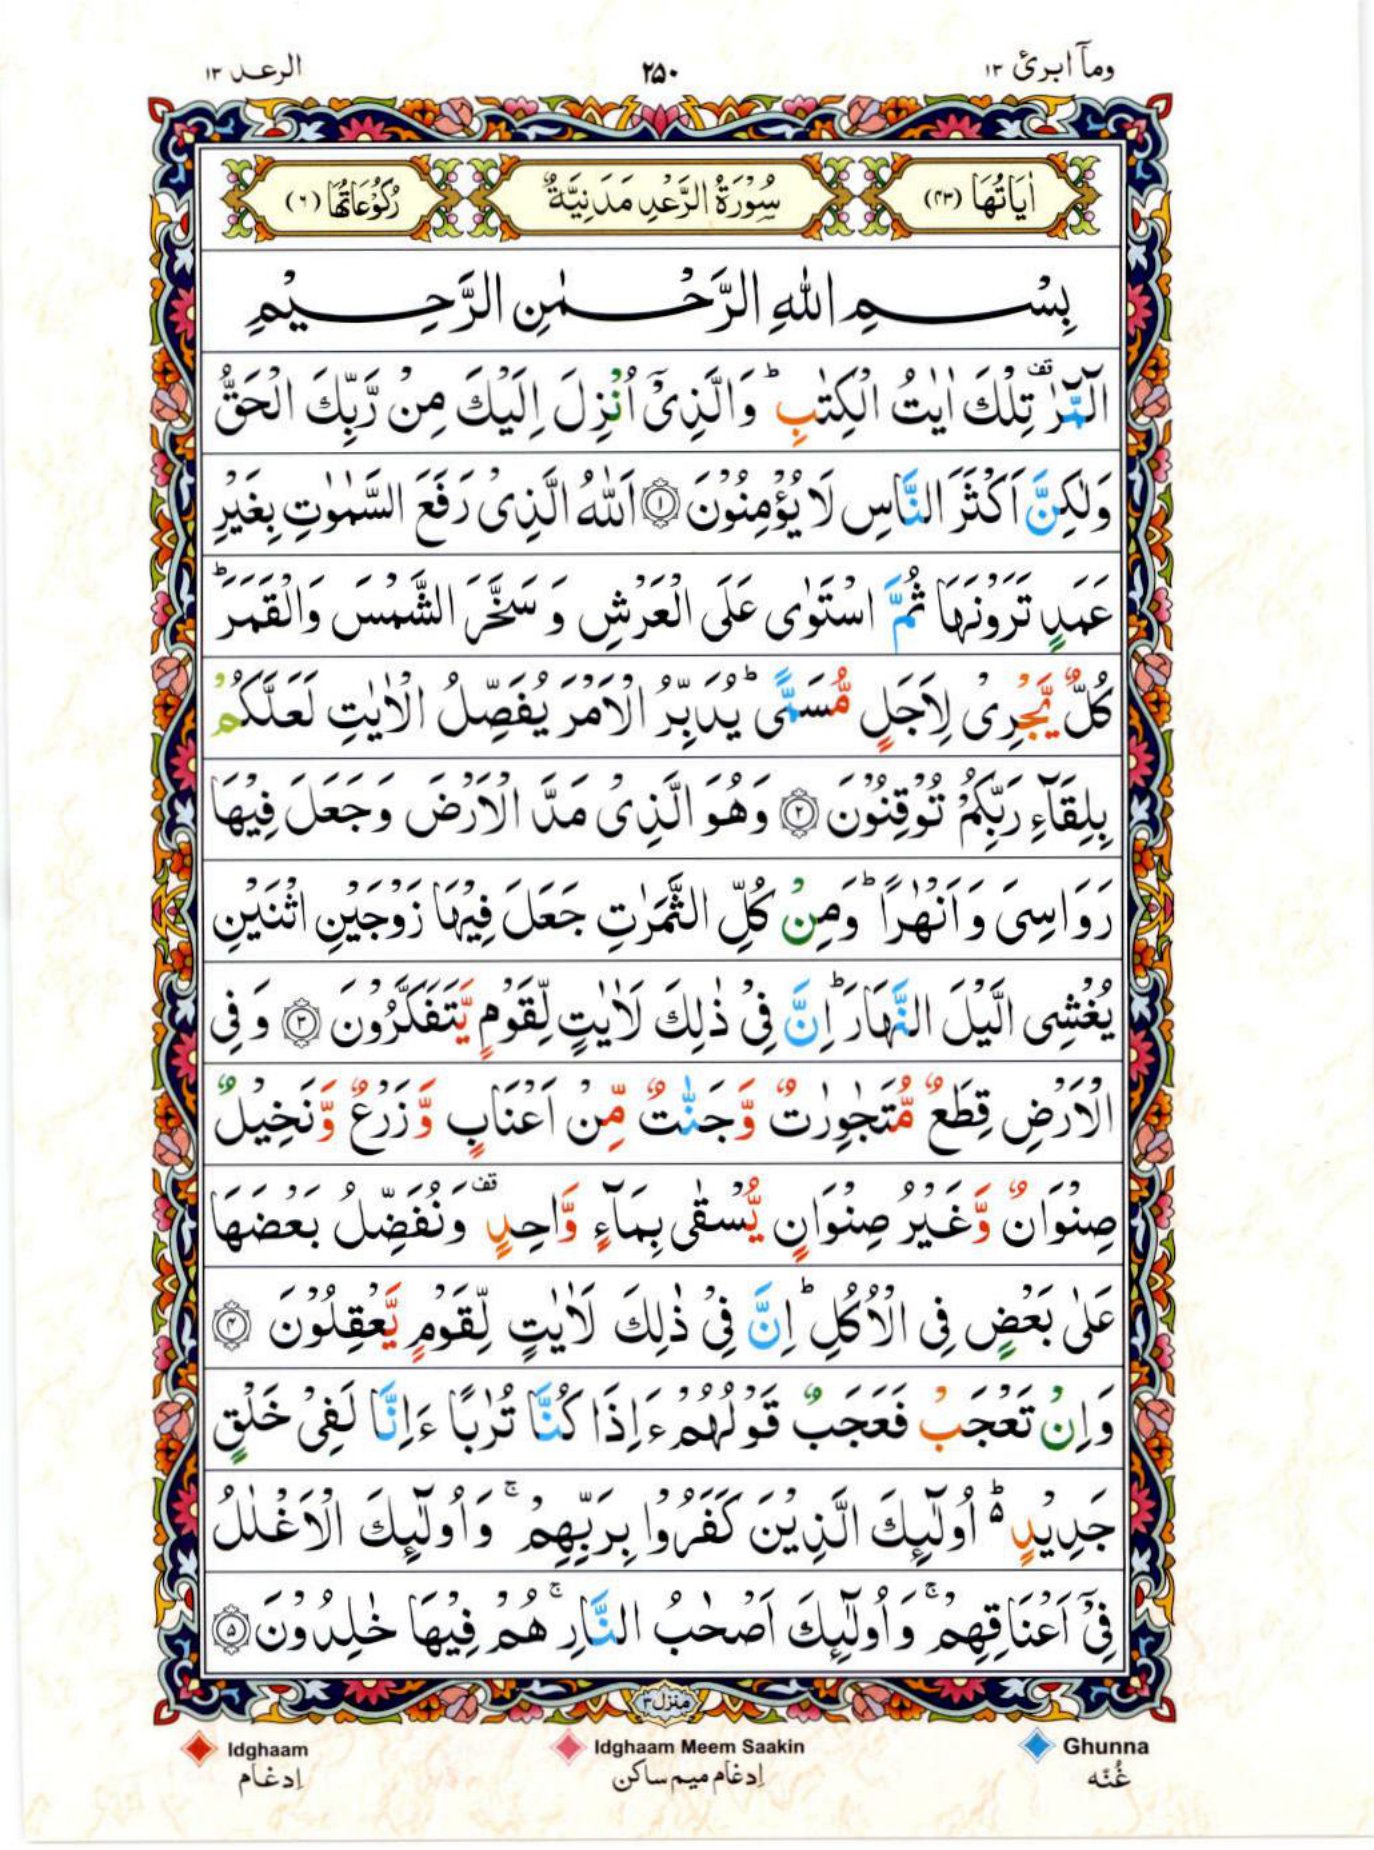 ومآ ابرئ ١٣
٢٥٠
الرعد ١٣
اٰيَاتُهَا (٤٣)
سُوْرَةُ الرَّعْدِ مَدَنِيَّةٌ
رُكُوْعَاتُهَا (٦)
بِسْمِ اللهِ الرَّحْمٰنِ الرَّحِيْمِ
الٓمّٓرٰ ࣞ تِلْكَ اٰيٰتُ الْكِتٰبِ ؕ وَالَّذِیْۤ اُنْزِلَ اِلَيْكَ مِنْ رَّبِّكَ الْحَقُّ
وَلٰكِنَّ اَكْثَرَ النَّاسِ لَا يُؤْمِنُوْنَ ﴿١﴾ اَللّٰهُ الَّذِیْ رَفَعَ السَّمٰوٰتِ بِغَيْرِ
عَمَدٍ تَرَوْنَهَا ثُمَّ اسْتَوٰی عَلَی الْعَرْشِ وَ سَخَّرَ الشَّمْسَ وَالْقَمَرَ ؕ
كُلٌّ يَّجْرِیْ لِاَجَلٍ مُّسَمًّی ؕ يُدَبِّرُ الْاَمْرَ يُفَصِّلُ الْاٰيٰتِ لَعَلَّكُمْ
بِلِقَآءِ رَبِّكُمْ تُوْقِنُوْنَ ﴿٢﴾ وَهُوَ الَّذِیْ مَدَّ الْاَرْضَ وَجَعَلَ فِيْهَا
رَوَاسِیَ وَاَنْهٰرًا ؕ وَمِنْ كُلِّ الثَّمَرٰتِ جَعَلَ فِيْهَا زَوْجَيْنِ اثْنَيْنِ
يُغْشِی الَّيْلَ النَّهَارَ ؕ اِنَّ فِیْ ذٰلِكَ لَاٰيٰتٍ لِّقَوْمٍ يَّتَفَكَّرُوْنَ ﴿٣﴾ وَفِی
الْاَرْضِ قِطَعٌ مُّتَجٰوِرٰتٌ وَّجَنّٰتٌ مِّنْ اَعْنَابٍ وَّزَرْعٌ وَّنَخِيْلٌ
صِنْوَانٌ وَّغَيْرُ صِنْوَانٍ يُّسْقٰی بِمَآءٍ وَّاحِدٍ ࣞ وَنُفَضِّلُ بَعْضَهَا
عَلٰی بَعْضٍ فِی الْاُكُلِ ؕ اِنَّ فِیْ ذٰلِكَ لَاٰيٰتٍ لِّقَوْمٍ يَّعْقِلُوْنَ ﴿٤﴾
وَاِنْ تَعْجَبْ فَعَجَبٌ قَوْلُهُمْ ءَاِذَا كُنَّا تُرٰبًا ءَاِنَّا لَفِیْ خَلْقٍ
جَدِيْدٍ ؕ۵ اُولٰٓئِكَ الَّذِيْنَ كَفَرُوْا بِرَبِّهِمْ ۚ وَاُولٰٓئِكَ الْاَغْلٰلُ
فِیْۤ اَعْنَاقِهِمْ ۚ وَاُولٰٓئِكَ اَصْحٰبُ النَّارِ ۚ هُمْ فِيْهَا خٰلِدُوْنَ ﴿٥﴾
منزل ٣
Idghaam
اِدغام
Idghaam Meem Saakin
اِدغام میم ساکن
Ghunna
غُنّه